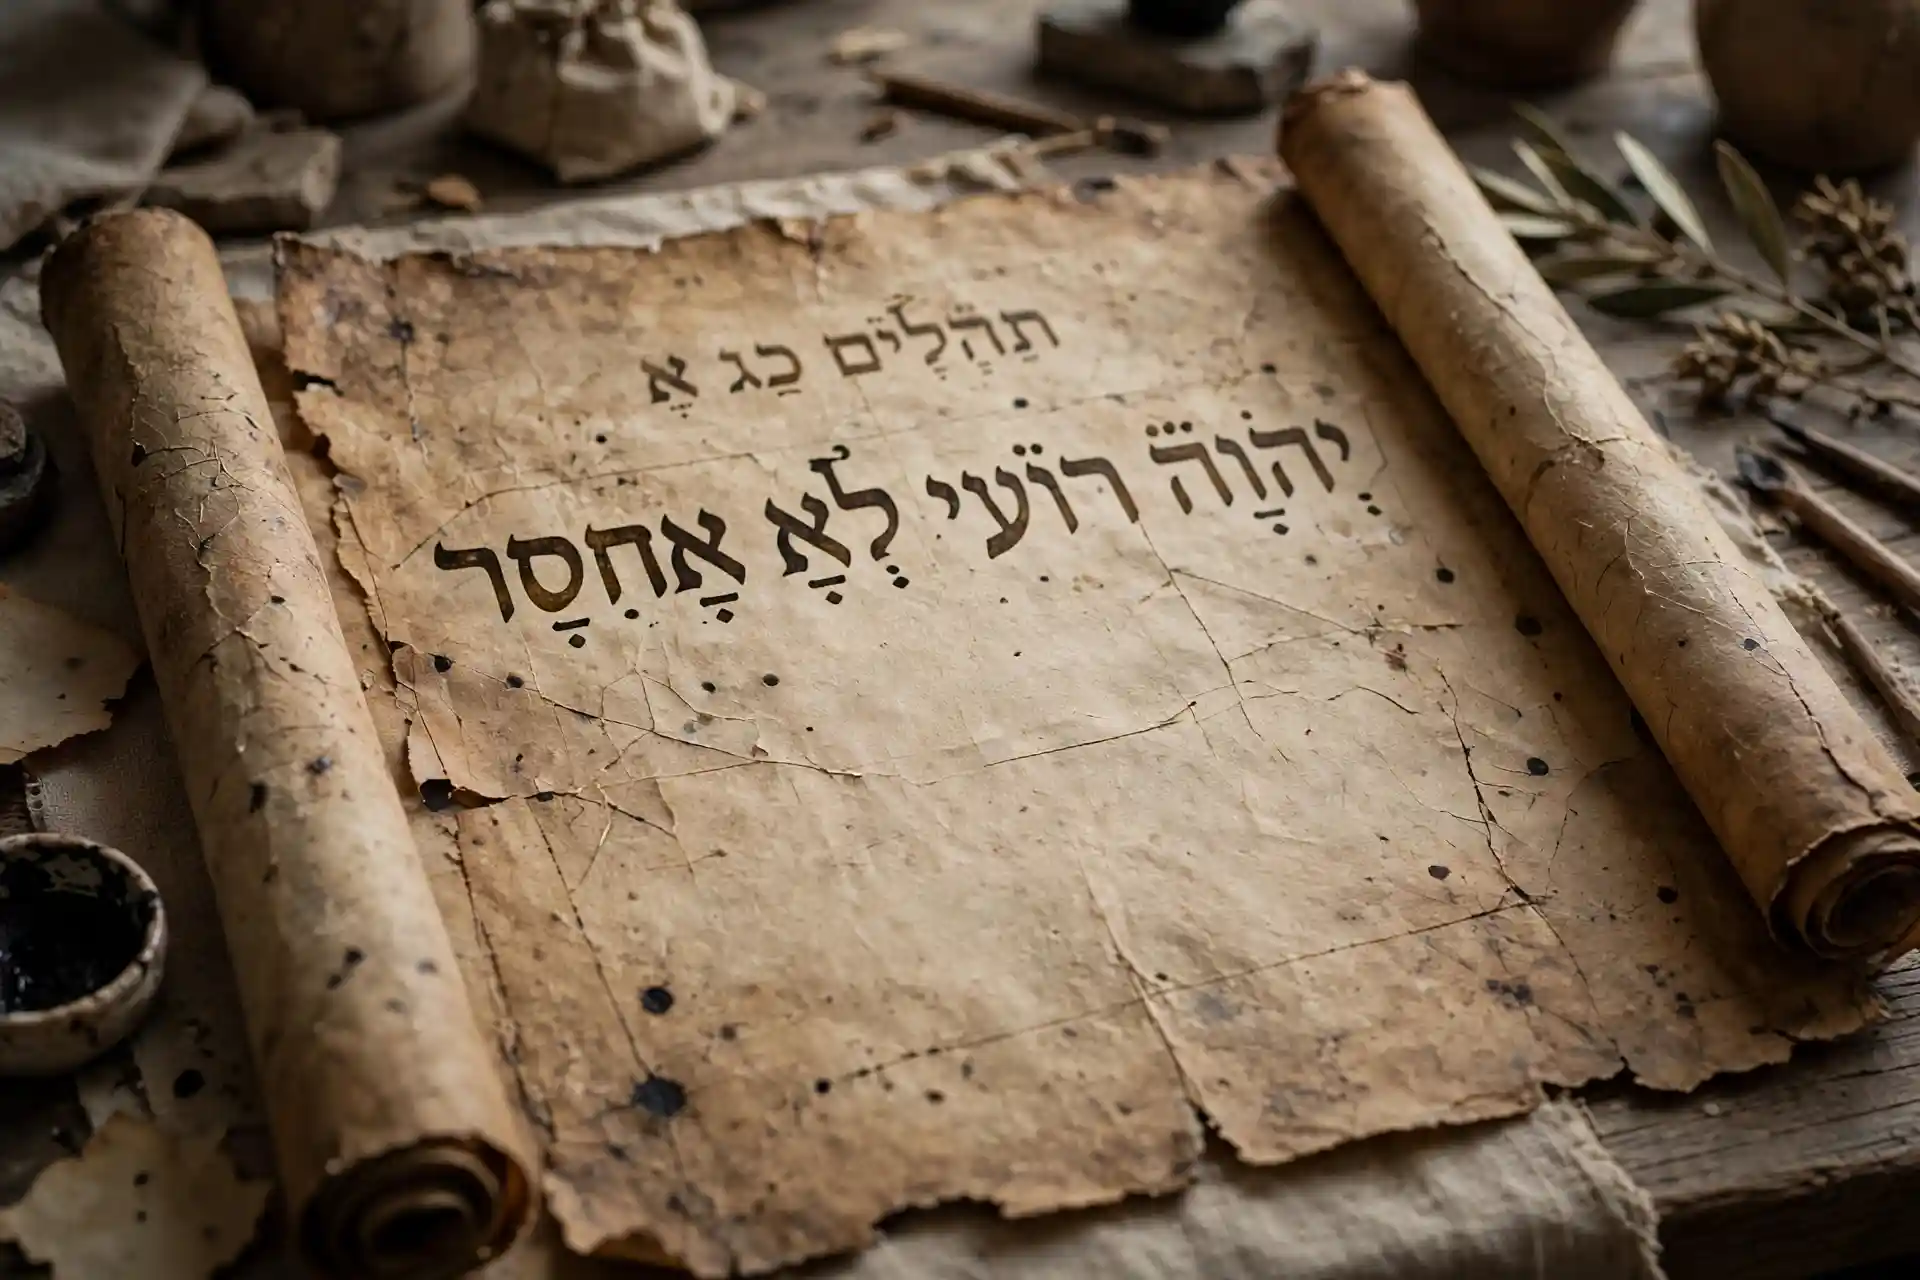 תַהָלִים כַג אָ
יְהֹוָה רוֹעִי לְאָ אָחִסָר